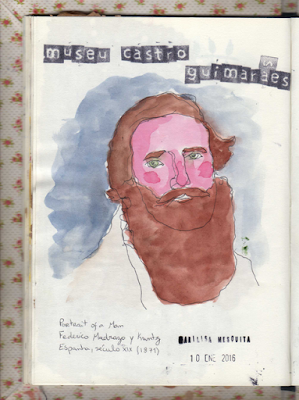 museu castro
guimarães
Portrait of a Man
Federico Madrazo y Kuntz
Espanha, século XIX
MARILISA MESQUITA
10. ENE 2016